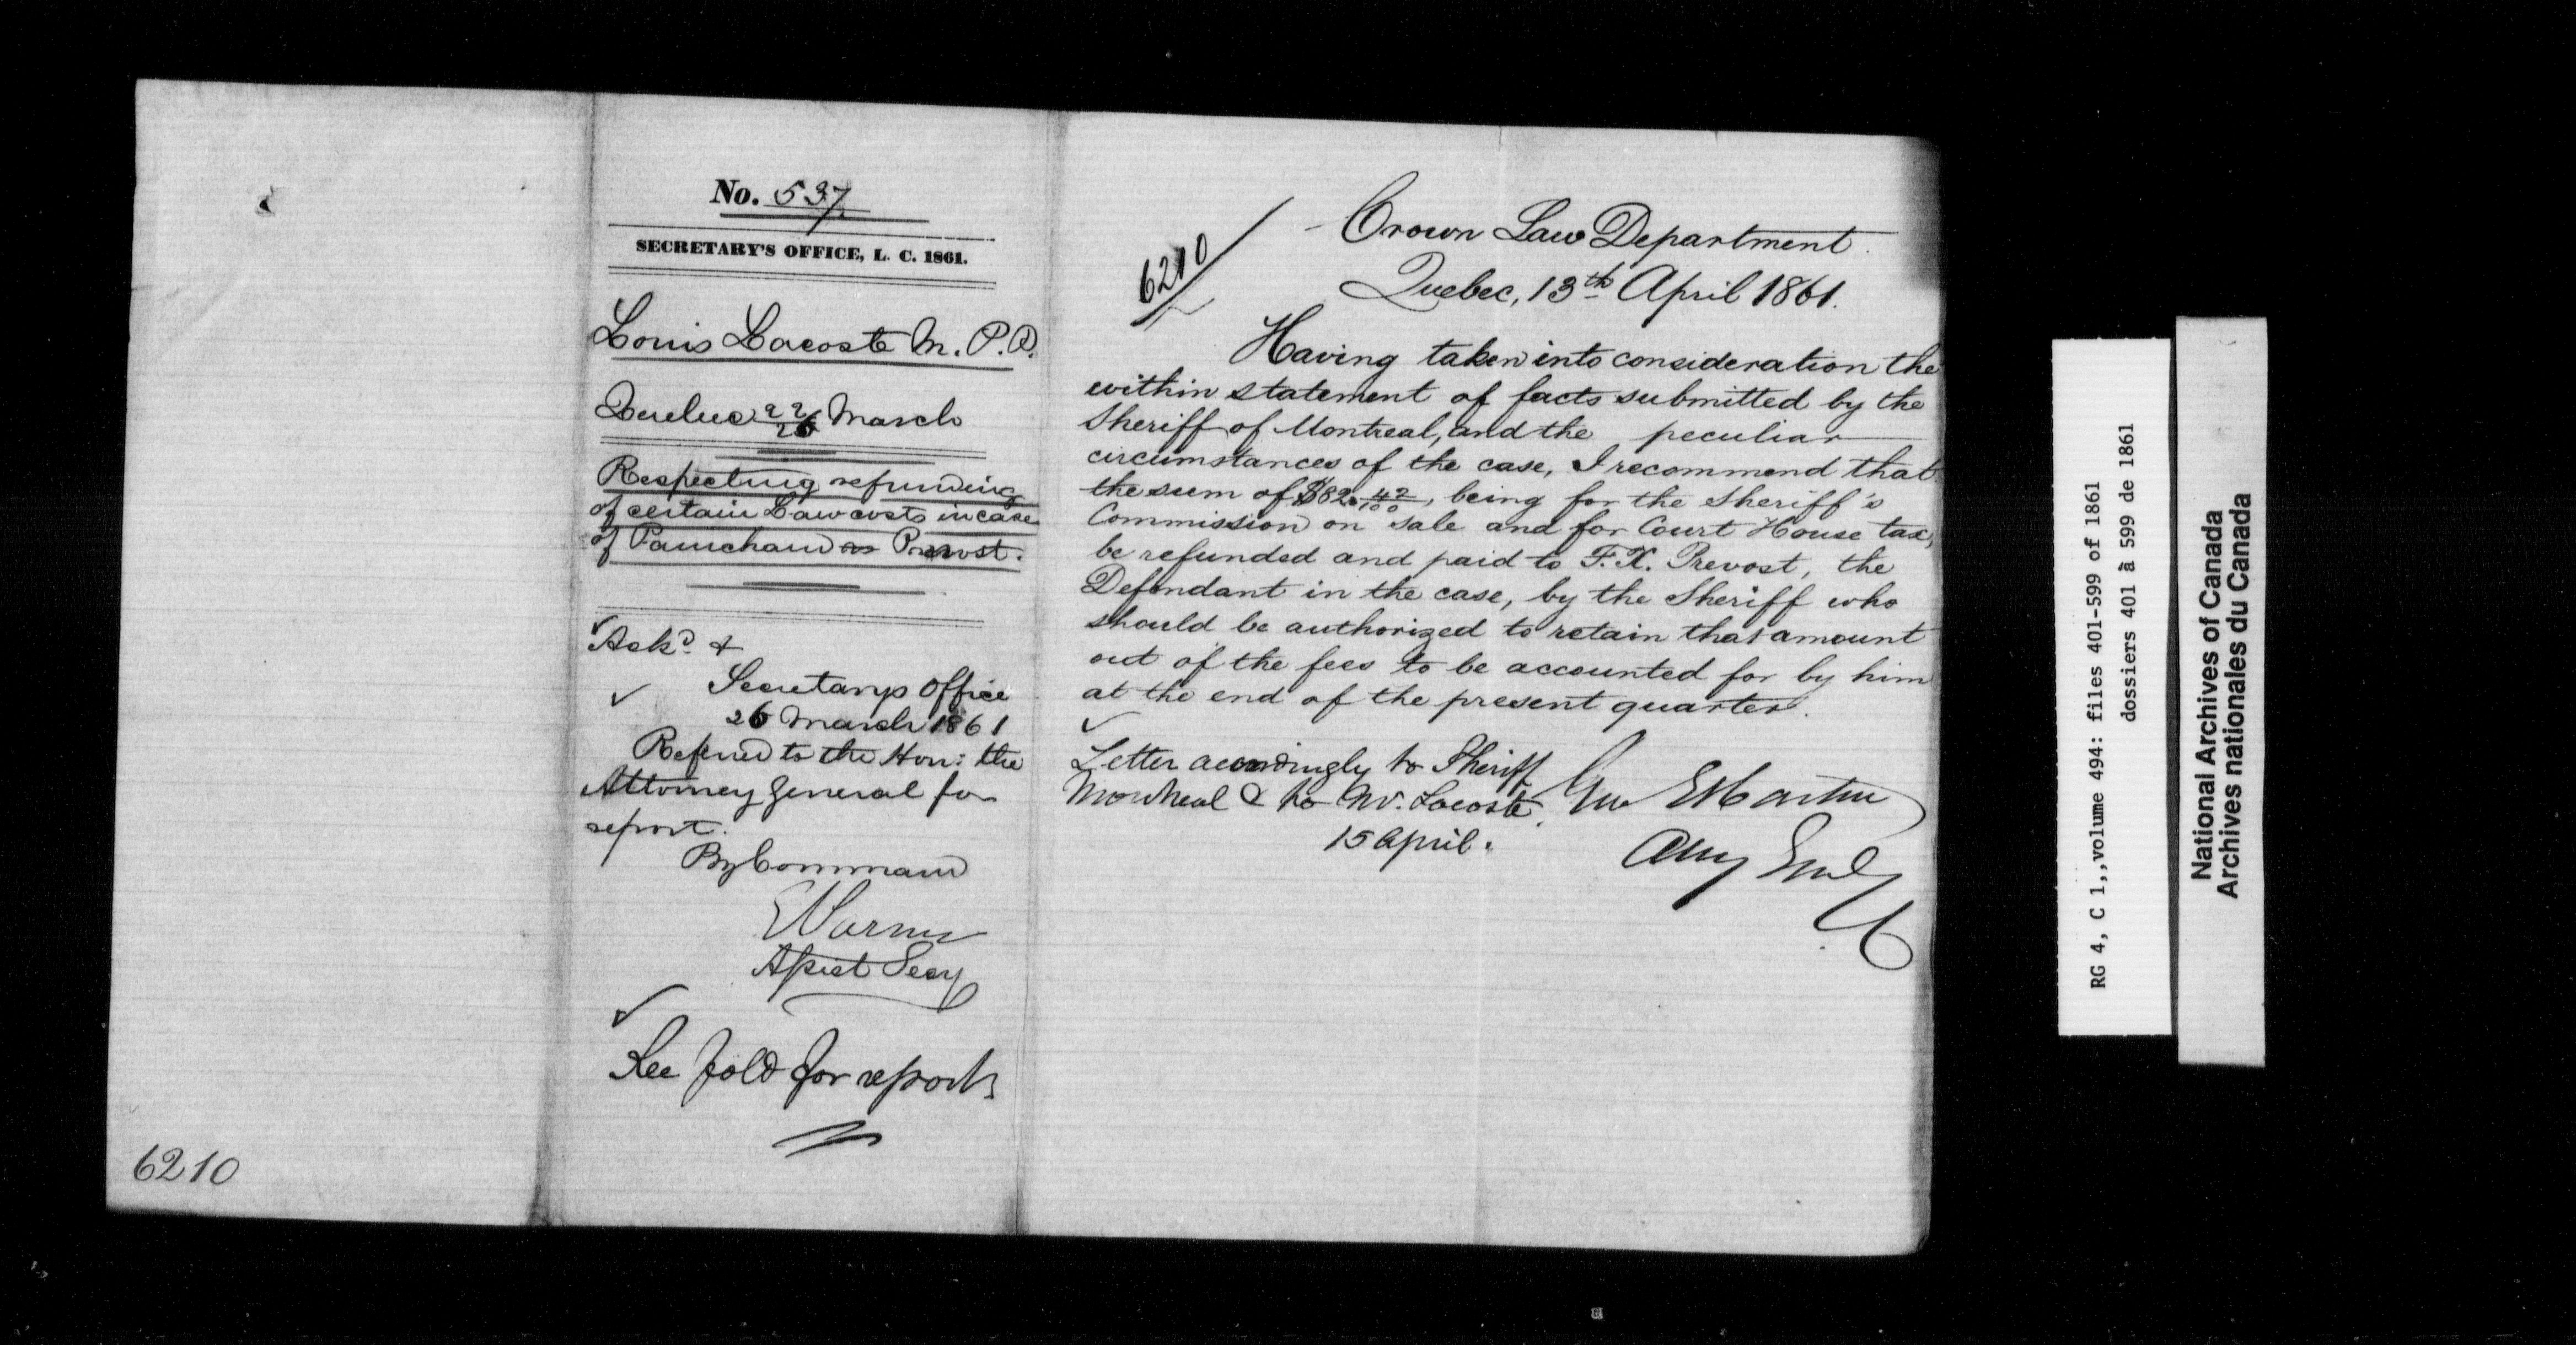 No. 537
SECRETARY'S OFFICE, L. C. 1861.
Louis Lacoste M. P. P.
Quebec 22/26 March
Respecting refunding
of certain Law costs in case
of Painchaud vs Prevost.
Ackd. &
Secretary's Office
26 March 1861
Referred to the Hon: the
Attorney General for
report.
By Command
E Parent
Assist Secy
See fold for report
6210
6210
Crown Law Department.
Quebec, 13th April 1861.
Having taken into consideration the
within statement of facts submitted by the
Sheriff of Montreal, and the peculiar
circumstances of the case, I recommend that
the sum of $82. 42/100, being for the Sheriff's
Commission on sale and for Court House tax,
be refunded and paid to F. X. Prevost, the
Defendant in the case, by the Sheriff who
should be authorized to retain that amount
out of the fees to be accounted for by him
at the end of the present quarter.
Geo E Cartier
Atty Genl
Letter accordingly to Sheriff
Montreal & to Mr. Lacoste.
15 April.
RG 4, C 1,,volume 494: files 401-599 of 1861
dossiers 401 à 599 de 1861
National Archives of Canada
Archives nationales du Canada